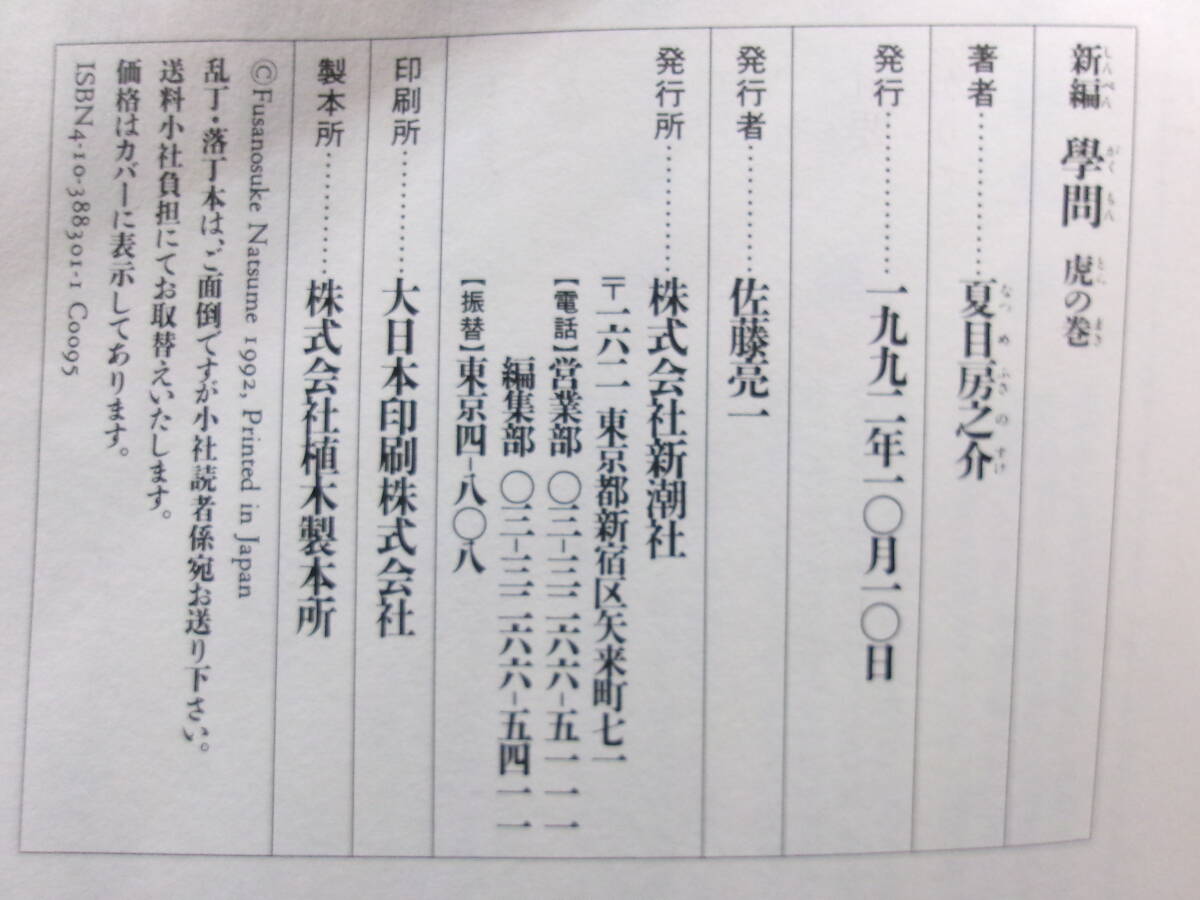 新編 學問 虎の巻
しんぺん がくもん とら まき
著者…………夏目房之介
なつめふさのすけ
発行…………一九九二年一〇月一〇日
発行者…………佐藤亮一
発行所…………株式会社新潮社
〒一六二 東京都新宿区矢来町七一
【電話】営業部 〇三-三二六六-五一一一
編集部 〇三-三二六六-五四一一
【振替】東京四-八〇八
印刷所…………大日本印刷株式会社
製本所…………株式会社植木製本所
©Fusanosuke Natsume 1992, Printed in Japan
乱丁・落丁本は、ご面倒ですが小社読者係宛お送り下さい。
送料小社負担にてお取替えいたします。
価格はカバーに表示してあります。
ISBN4-10-388301-1 C0095